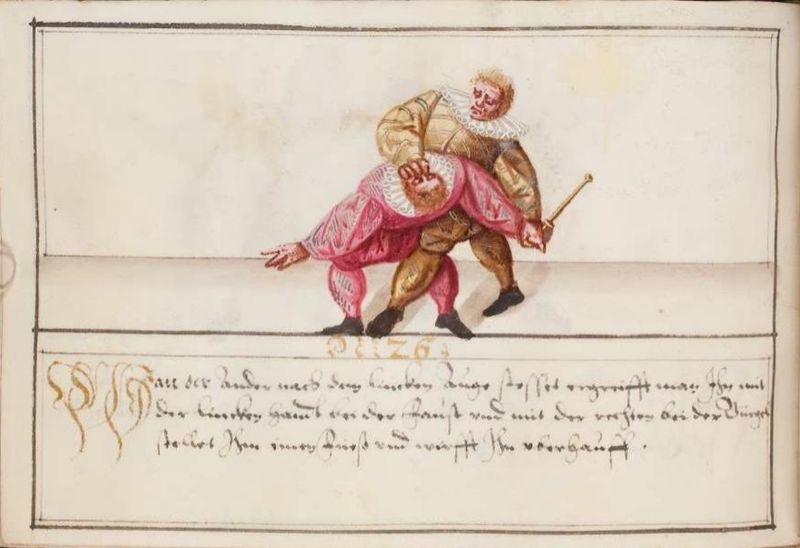 N 26
Wan der Ander nach dem lincken Auge stosset ergreifft man Ihn mit
der lincken handt bei der Faust vnd mit der rechten bei der Gürgel
stellet Ihm einen Fueß vnd wirfft Ihn vberhauff.